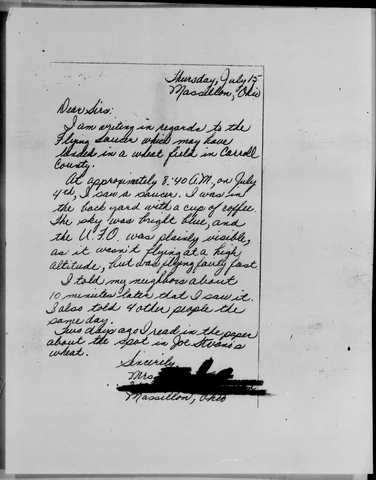 Thursday, July 15
Massillon, Ohio
Dear Sirs:
I am writing in regards to the
Flying Saucer which may have
landed in a wheat field in Carroll
County.
At approximately 8:40 A.M., on July
4th, I saw a saucer. I was in
the back yard with a cup of coffee.
The sky was bright blue, and
the U.F.O. was plainly visible,
as it wasn't flying at a high
altitude, but was flying fairly fast.
I told my neighbors about
10 minutes later that I saw it.
I also told 4 other people the
same day.
Two days ago I read in the paper
about the spot in Joe Stvans's
wheat.
Sincerely,
Mrs
Massillon, Ohio